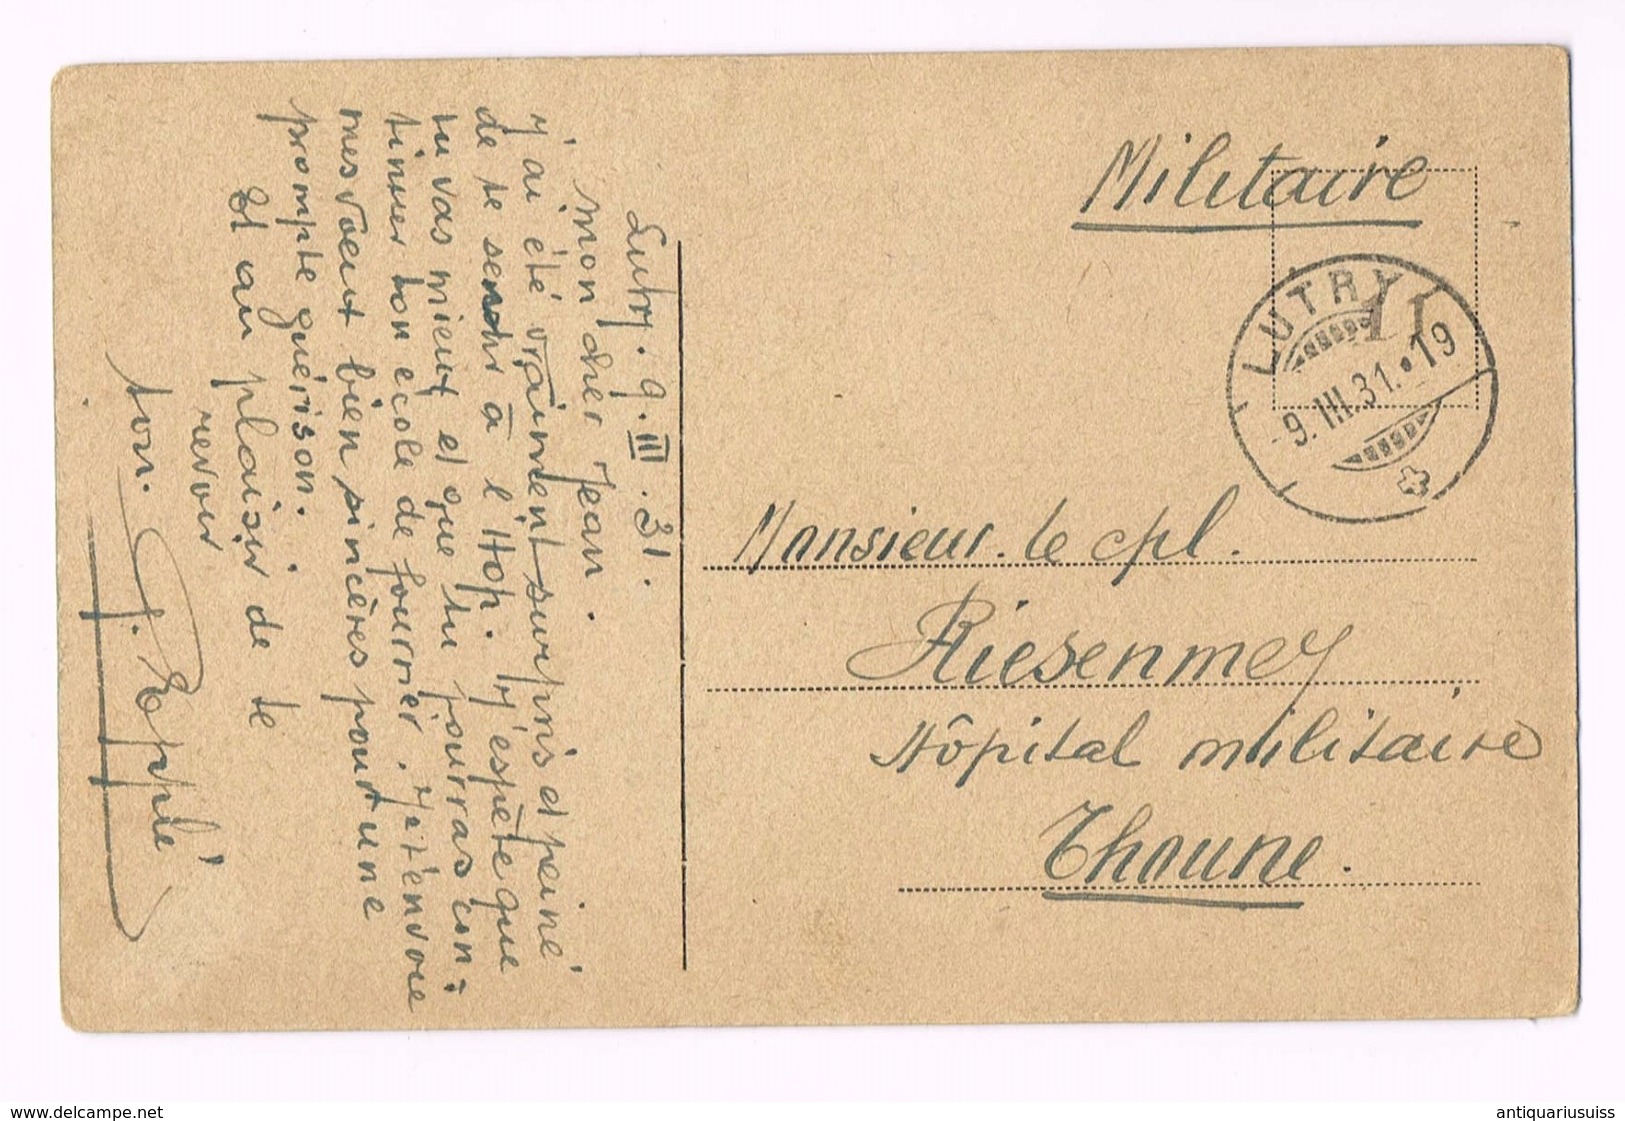 Lutry. 9. III. 31.
Mon cher Jean.
J'ai été vraiment surpris et peiné
de te sentir à l'Hop. J'espère que
tu vas mieux et que tu pourras con=
tinuer ton école de fourrier. Je t'envoie
mes voeux bien sincères pour une
prompte guérison.
Et au plaisir de te
revoir
ton.
Militaire
LUTRY
11
-9.III.31.•19
Monsieur. le cpl.
Riesenmey
Hôpital militaire
Thoune.
www.delcampe.net
antiquariusuiss